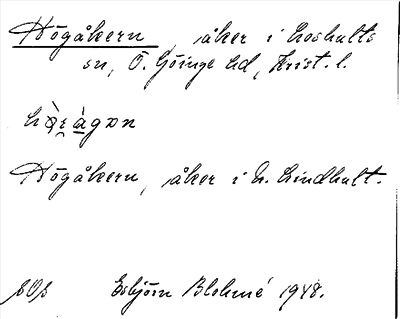 Högåkern åker i Loshults
sn, Ö. Göinge hd, Krist. l.
Högåkern, åker i N. Lindhult.
Esbjörn Blohmé 1948.